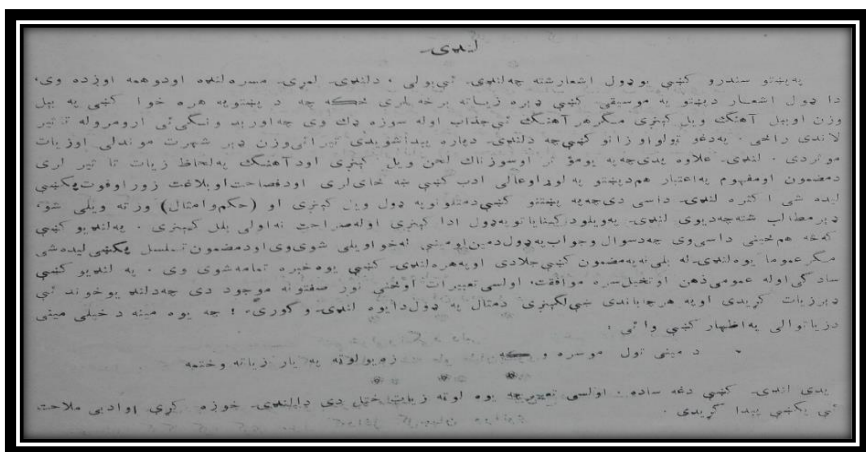 لنډۍ
په پښتو سندرو کښې يو ډول اشعار شته چه لنډۍ ئې بولي . د لنډۍ لمړۍ مسره لنډه او دوهمه اوږده وي.
دا ډول اشعار د پښتو په موسيقۍ کښې ډېره زياته برخه لري ځکه چه د پښتو په هره خوا کښې په بېل
وزن او بېل آهنګ ويل کېږي مګر هر آهنګ ئې جذاب او له سوزه ډك وي چه اوريدونکي ئې ارومرو له تاثير
لاندې راځي . په دغو ټولو اوزانو کښې چه د لنډۍ دپاره پيدا شويدي تيرائي وزن ډېر شهرت موندلى او زيات
مؤثر دى . لنډۍ علاوه پدې چه په يو مؤثر او سوزناك لحن ويل کېږي او د آهنګ په لحاظ زيات تاثير لري
د مضمون او مفهوم په اعتبار هم د پښتو په لوړ او عالي ادب کښې ښه ځاى لري او د فصاحت او بلاغت زور او قوت پکښې
ليده شي اکثره لنډۍ داسې دي چه په پښتو کښې د متلونو په ډول ويل کېږي او (حکم و امثال) ورته ويلى شو.
ډېر مطالب شته چه د يوې لنډۍ په ويلو د کنايا تو په ډول ادا کېږي او له صراحت نه اولى بلل کېږي . په لنډيو کښې
ځنې داسې وي چه د سوال و جواب په ډول د مين او ميني له خوا ويلې شوي وي او د مضمون تسلسل پکښې ليده شي
مګر عموماً يوه لنډۍ له بلې نه په مضمون کښې جلا ده او په هره لنډۍ کښې يوه خبره تمامه شوې وي . په لنډيو کښې
سادګي او له عمومي ذهن او تخيل سره موافقت، اولسي تعبيرات او ځنې نور صفتونه موجود دي چه د لنډيو خوند ئې
ډېر زيات کړيدى او په هر چا باندې ښې لګېږي د مثال په ډول دا يوه لنډۍ وګورئ : چه يوه مينه د خپلې ميني
د زياتوالي په اظهار کښې وائي :
د ميني تول مو سره وکه زه يو لوټه په يار زياته وختمه
پدې لنډۍ کښې دغه ساده . اولسي تعبير چه يوه لوټه زيات ختل دي دا لنډۍ خوږه کړې او ادبي ملاحت
ئې پکښې پيدا کړيدى .